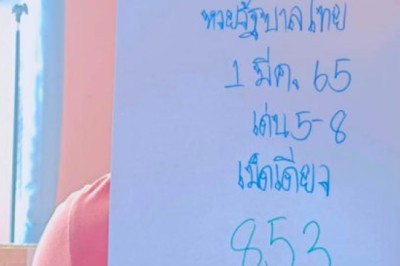 หวยรัฐบาลไทย
1 มีค. 65
เด่น 5-8
เม็ดเดียว
853